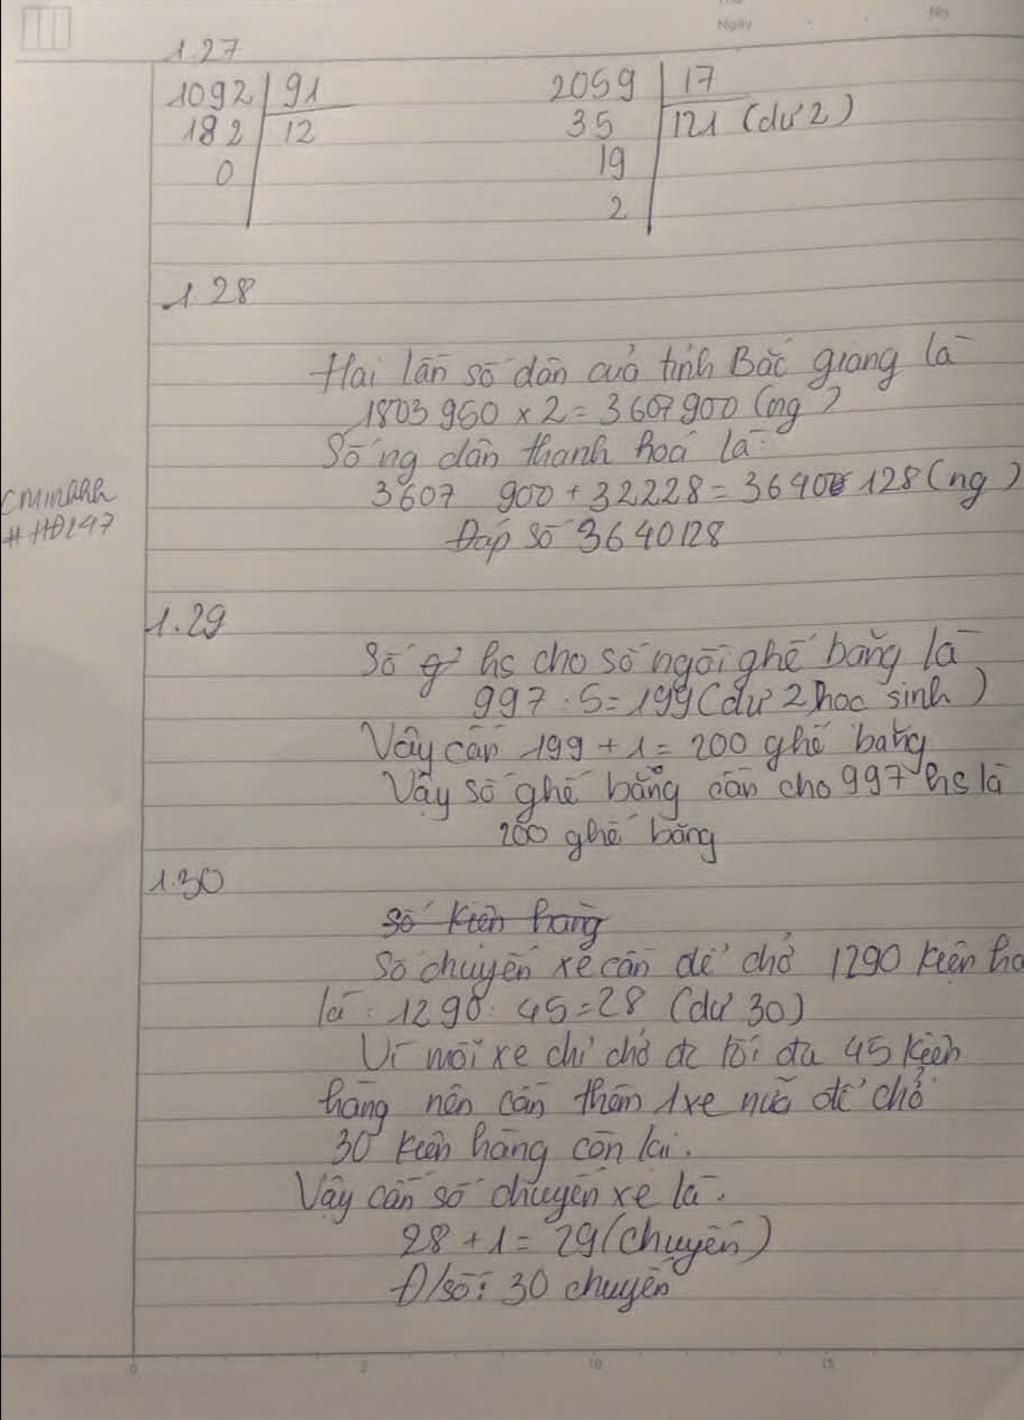 Ngày
No
1.27
1092 91
182 12
0
2059 17
35 121 (dư 2)
19
2
1.28
Hai lần số dân của tỉnh Bắc giang là
1803 950 x 2 = 3607 900 (ng)
Số ng dân thanh hoá là:
3607 900 + 32228 = 3640 128 (ng)
Đáp số 3640128
cminhhh
#HĐ247
1.29
Số hs cho số ngồi ghế băng là
997 : 5 = 199 (dư 2 học sinh)
Vậy cần 199 + 1 = 200 ghế băng
Vậy số ghế băng cần cho 997 hs là
200 ghế băng
1.30
Số kiện hàng
Số chuyến xe cần để chở 1290 kiện hà
là: 1290 : 45 = 28 (dư 30)
Vì mỗi xe chỉ chở đc tối đa 45 kiện
hàng nên cần thêm 1 xe nữa để chở
30 kiện hàng còn lại.
Vậy cần số chuyến xe là:
28 + 1 = 29 (chuyến)
Đ/số: 30 chuyến
0 5 10 15